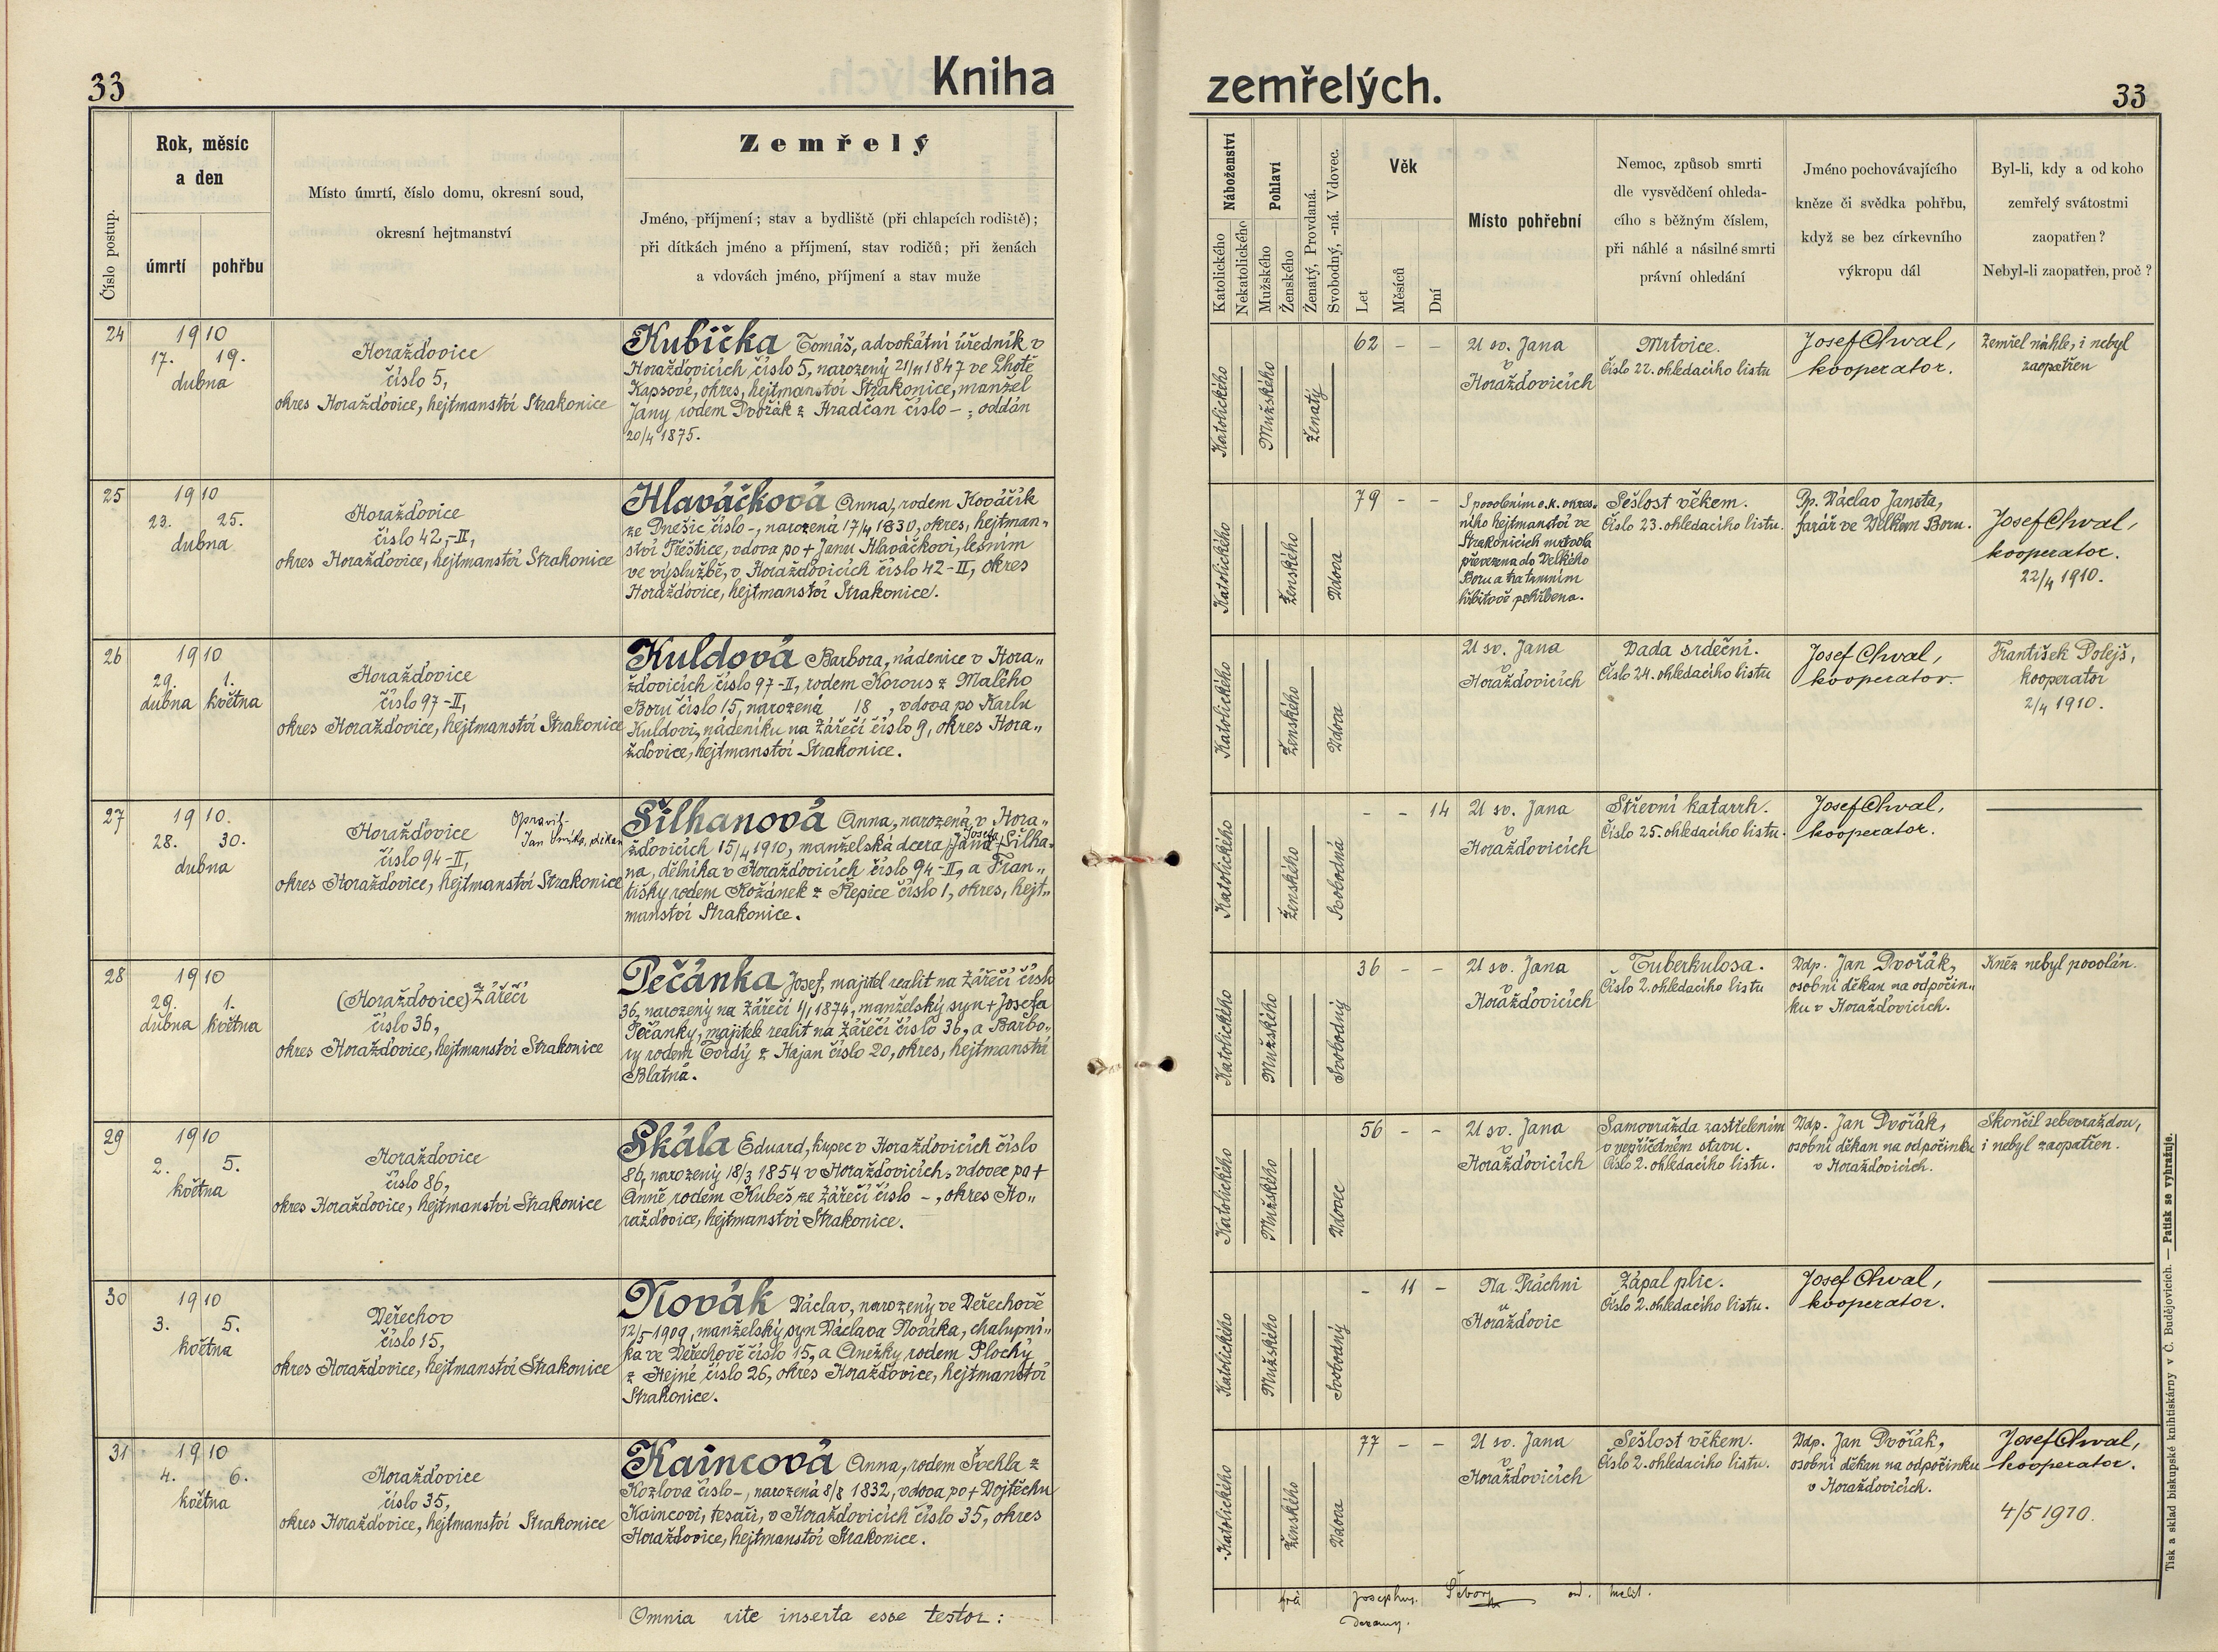 33
Kniha
zemřelých.
33
Číslo postup.
Rok, měsíc
a den
úmrtí
pohřbu
Místo úmrtí, číslo domu, okresní soud,
okresní hejtmanství
Zemřelý
Jméno, příjmení; stav a bydliště (při chlapcích rodiště);
při dítkách jméno a příjmení, stav rodičů; při ženách
a vdovách jméno, příjmení a stav muže
Náboženství
Katolického
Nekatolického
Pohlaví
Mužského
Ženského
Ženatý, Provdaná.
Svobodný, -ná. Vdovec.
Věk
Let
Měsíců
Dní
Místo pohřební
Nemoc, způsob smrti
dle vysvědčení ohleda-
cího s běžným číslem,
při náhlé a násilné smrti
právní ohledání
Jméno pochovávajícího
kněze či svědka pohřbu,
když se bez církevního
výkropu dál
Byl-li, kdy a od koho
zemřelý svátostmi
zaopatřen?
Nebyl-li zaopatřen, proč?
24
1910
17. 19.
dubna
Horažďovice
číslo 5,
okres Horažďovice, hejtmanství Strakonice
Kubička Tomáš, advokátní úředník v
Horažďovicích číslo 5, narozený 21/11 1847 ve Lhotě
Kapsové, okres, hejtmanství Strakonice, manžel
Jany rodem Dvořák z Hradčan číslo -; oddán
20/4 1875.
Katolického
Mužského
Ženatý
62 - -
U sv. Jana
v
Horažďovicích
Mrtvice.
Číslo 22. ohledacího listu
Josef Chval,
kooperator.
Zemřel náhle, i nebyl
zaopatřen
25
1910
23. 25.
dubna
Horažďovice
číslo 42,-II,
okres Horažďovice, hejtmanství Strakonice
Hlaváčková Anna, rodem Kováčík
ze Dnešic číslo -, narozená 17/4 1830, okres, hejtman„
ství Přeštice, vdova po + Janu Hlaváčkovi, lesním
ve výslužbě, v Horažďovicích číslo 42-II, okres
Horažďovice, hejtmanství Strakonice.
Katolického
Ženského
Vdova
79 - -
S povolením c.k. okres.
ního hejtmanství ve
Strakonicích mrtvola
převezena do Velkého
Boru a na tamním
hřbitově pohřbena.
Sešlost věkem.
Číslo 23. ohledacího listu.
Dp. Václav Jansta,
farář ve Velkém Boru.
Josef Chval,
kooperator.
22/4 1910.
26
1910
29. 1.
dubna května
Horažďovice
číslo 97-II,
okres Horažďovice, hejtmanství Strakonice
Kuldová Barbora, nádenice v Hora„
žďovicích číslo 97-II, rodem Korous z Malého
Boru číslo 15, narozená 18 , vdova po Karlu
Kuldovi, nádeníku na Zářečí číslo 9, okres Hora„
žďovice, hejtmanství Strakonice.
Katolického
Ženského
Vdova
U sv. Jana
v
Horažďovicích
Vada srdeční.
Číslo 24. ohledacího listu
Josef Chval,
kooperator.
František Dolejš,
kooperator
2/4 1910.
27
1910.
28. 30.
dubna
Opravil.
Horažďovice
číslo 94-II,
okres Horažďovice, hejtmanství Strakonice
Šilhanová Anna, narozená v Hora„
Josefa
žďovicích 15/4 1910, manželská dcera Jana + Šilha-
na, dělníka v Horažďovicích číslo 94-II, a Fran„
tišky rodem Kožánek z Řepice číslo 1, okres, hejt„
manství Strakonice.
Katolického
Ženského
Svobodná
- - 14
U sv. Jana
v
Horažďovicích
Střevní katarrh.
Číslo 25. ohledacího listu.
Josef Chval,
kooperator.
28
1910
29. 1.
dubna května
(Horažďovice) Zářečí
číslo 36,
okres Horažďovice, hejtmanství Strakonice
Pečánka Josef, majitel realit na Zářečí číslo
36, narozený na Zářečí 1/1 1874, manželský syn + Josefa
Pečánky, majitele realit na Zářečí číslo 36, a Barbo„
ry rodem Tordy z Hajan číslo 20, okres, hejtmanství
Blatná.
Katolického
Mužského
Svobodný
36 - -
U sv. Jana
v
Horažďovicích
Tuberkulosa.
Číslo 2. ohledacího listu
Vdp. Jan Dvořák,
osobní děkan na odpočin„
ku v Horažďovicích.
Kněz nebyl povolán.
29
1910
2. 5.
května
Horažďovice
číslo 86,
okres Horažďovice, hejtmanství Strakonice
Skála Eduard, kupec v Horažďovicích číslo
86, narozený 18/3 1854 v Horažďovicích, vdovec po +
Anně rodem Kubeš ze Zářečí číslo -, okres Ho„
ražďovice, hejtmanství Strakonice.
Katolického
Mužského
Vdovec
56 - -
U sv. Jana
v
Horažďovicích
Samovražda zastřelením
v nepříčetném stavu.
Číslo 2. ohledacího listu.
Vdp. Jan Dvořák,
osobní děkan na odpočinku
v Horažďovicích.
Skončil sebevraždou,
i nebyl zaopatřen.
30
1910
3. 5.
května
Veřechov
číslo 15,
okres Horažďovice, hejtmanství Strakonice
Novák Václav, narozený ve Veřechově
12/5 1909, manželský syn Václava Nováka, chalupní„
ka ve Veřechově číslo 15, a Anežky rodem Plochý
z Hejné číslo 26, okres Horažďovice, hejtmanství
Strakonice.
Katolického
Mužského
Svobodný
- 11 -
Na Práchni
u
Horažďovic
Zápal plic.
Číslo 2. ohledacího listu.
Josef Chval,
kooperator.
31
1910
4. 6.
května
Horažďovice
číslo 35,
okres Horažďovice, hejtmanství Strakonice
Kaincová Anna, rodem Švehla z
Kozlova číslo -, narozená 8/8 1832, vdova po + Vojtěchu
Kaincovi, tesaři, v Horažďovicích číslo 35, okres
Horažďovice, hejtmanství Strakonice.
Katolického
Ženského
Vdova
77 - -
U sv. Jana
v
Horažďovicích
Sešlost věkem.
Číslo 2. ohledacího listu.
Vdp. Jan Dvořák,
osobní děkan na odpočinku
v Horažďovicích.
Josef Chval,
kooperator.
4/5 1910.
Omnia rite inserta esse testor:
Tisk a sklad biskupské knihtiskárny v Č. Budějovicích. — Patisk se vyhražuje.